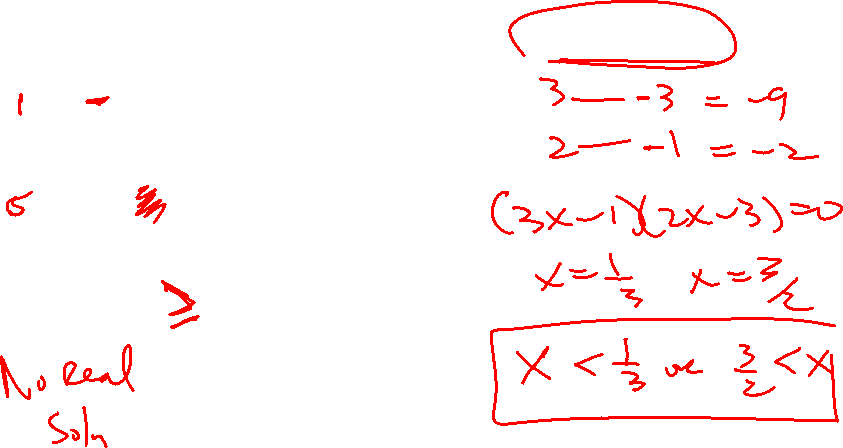 1 -
5
≥
No real
soln
3 — -3 = -9
2 — -1 = -2
(3x-1)(2x-3)=0
x=1/3 x=3/2
x < 1/3 or 3/2 < x